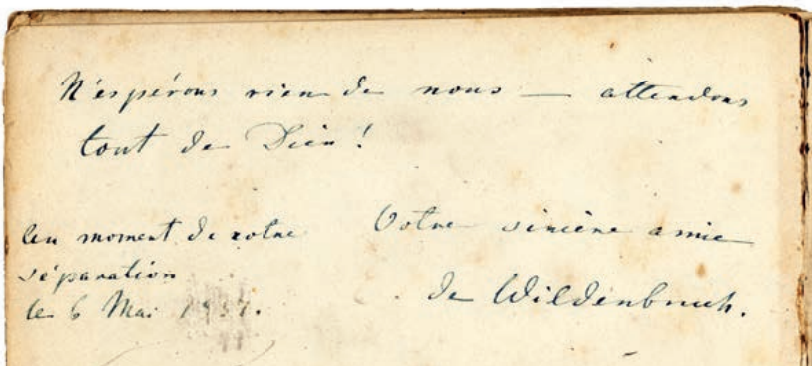 N'espérons rien de nous — attendons
tout de Dieu!
Au moment de notre
séparation
le 6 Mai
Votre sincère amie
de Wildenbruch.